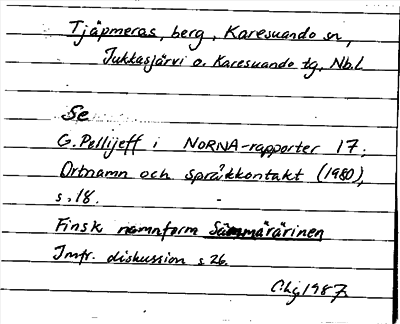 Tjåpmeras, berg, Karesuando sn,
Jukkasjärvi o. Karesuando tg, Nb.l
Se
G. Pellijeff i NORNA-rapporter 17;
Ortnamn och språkkontakt (1980),
s. 18.
Finsk namnform Sämmärärinen
Jmfr. diskussion s 26.
1987